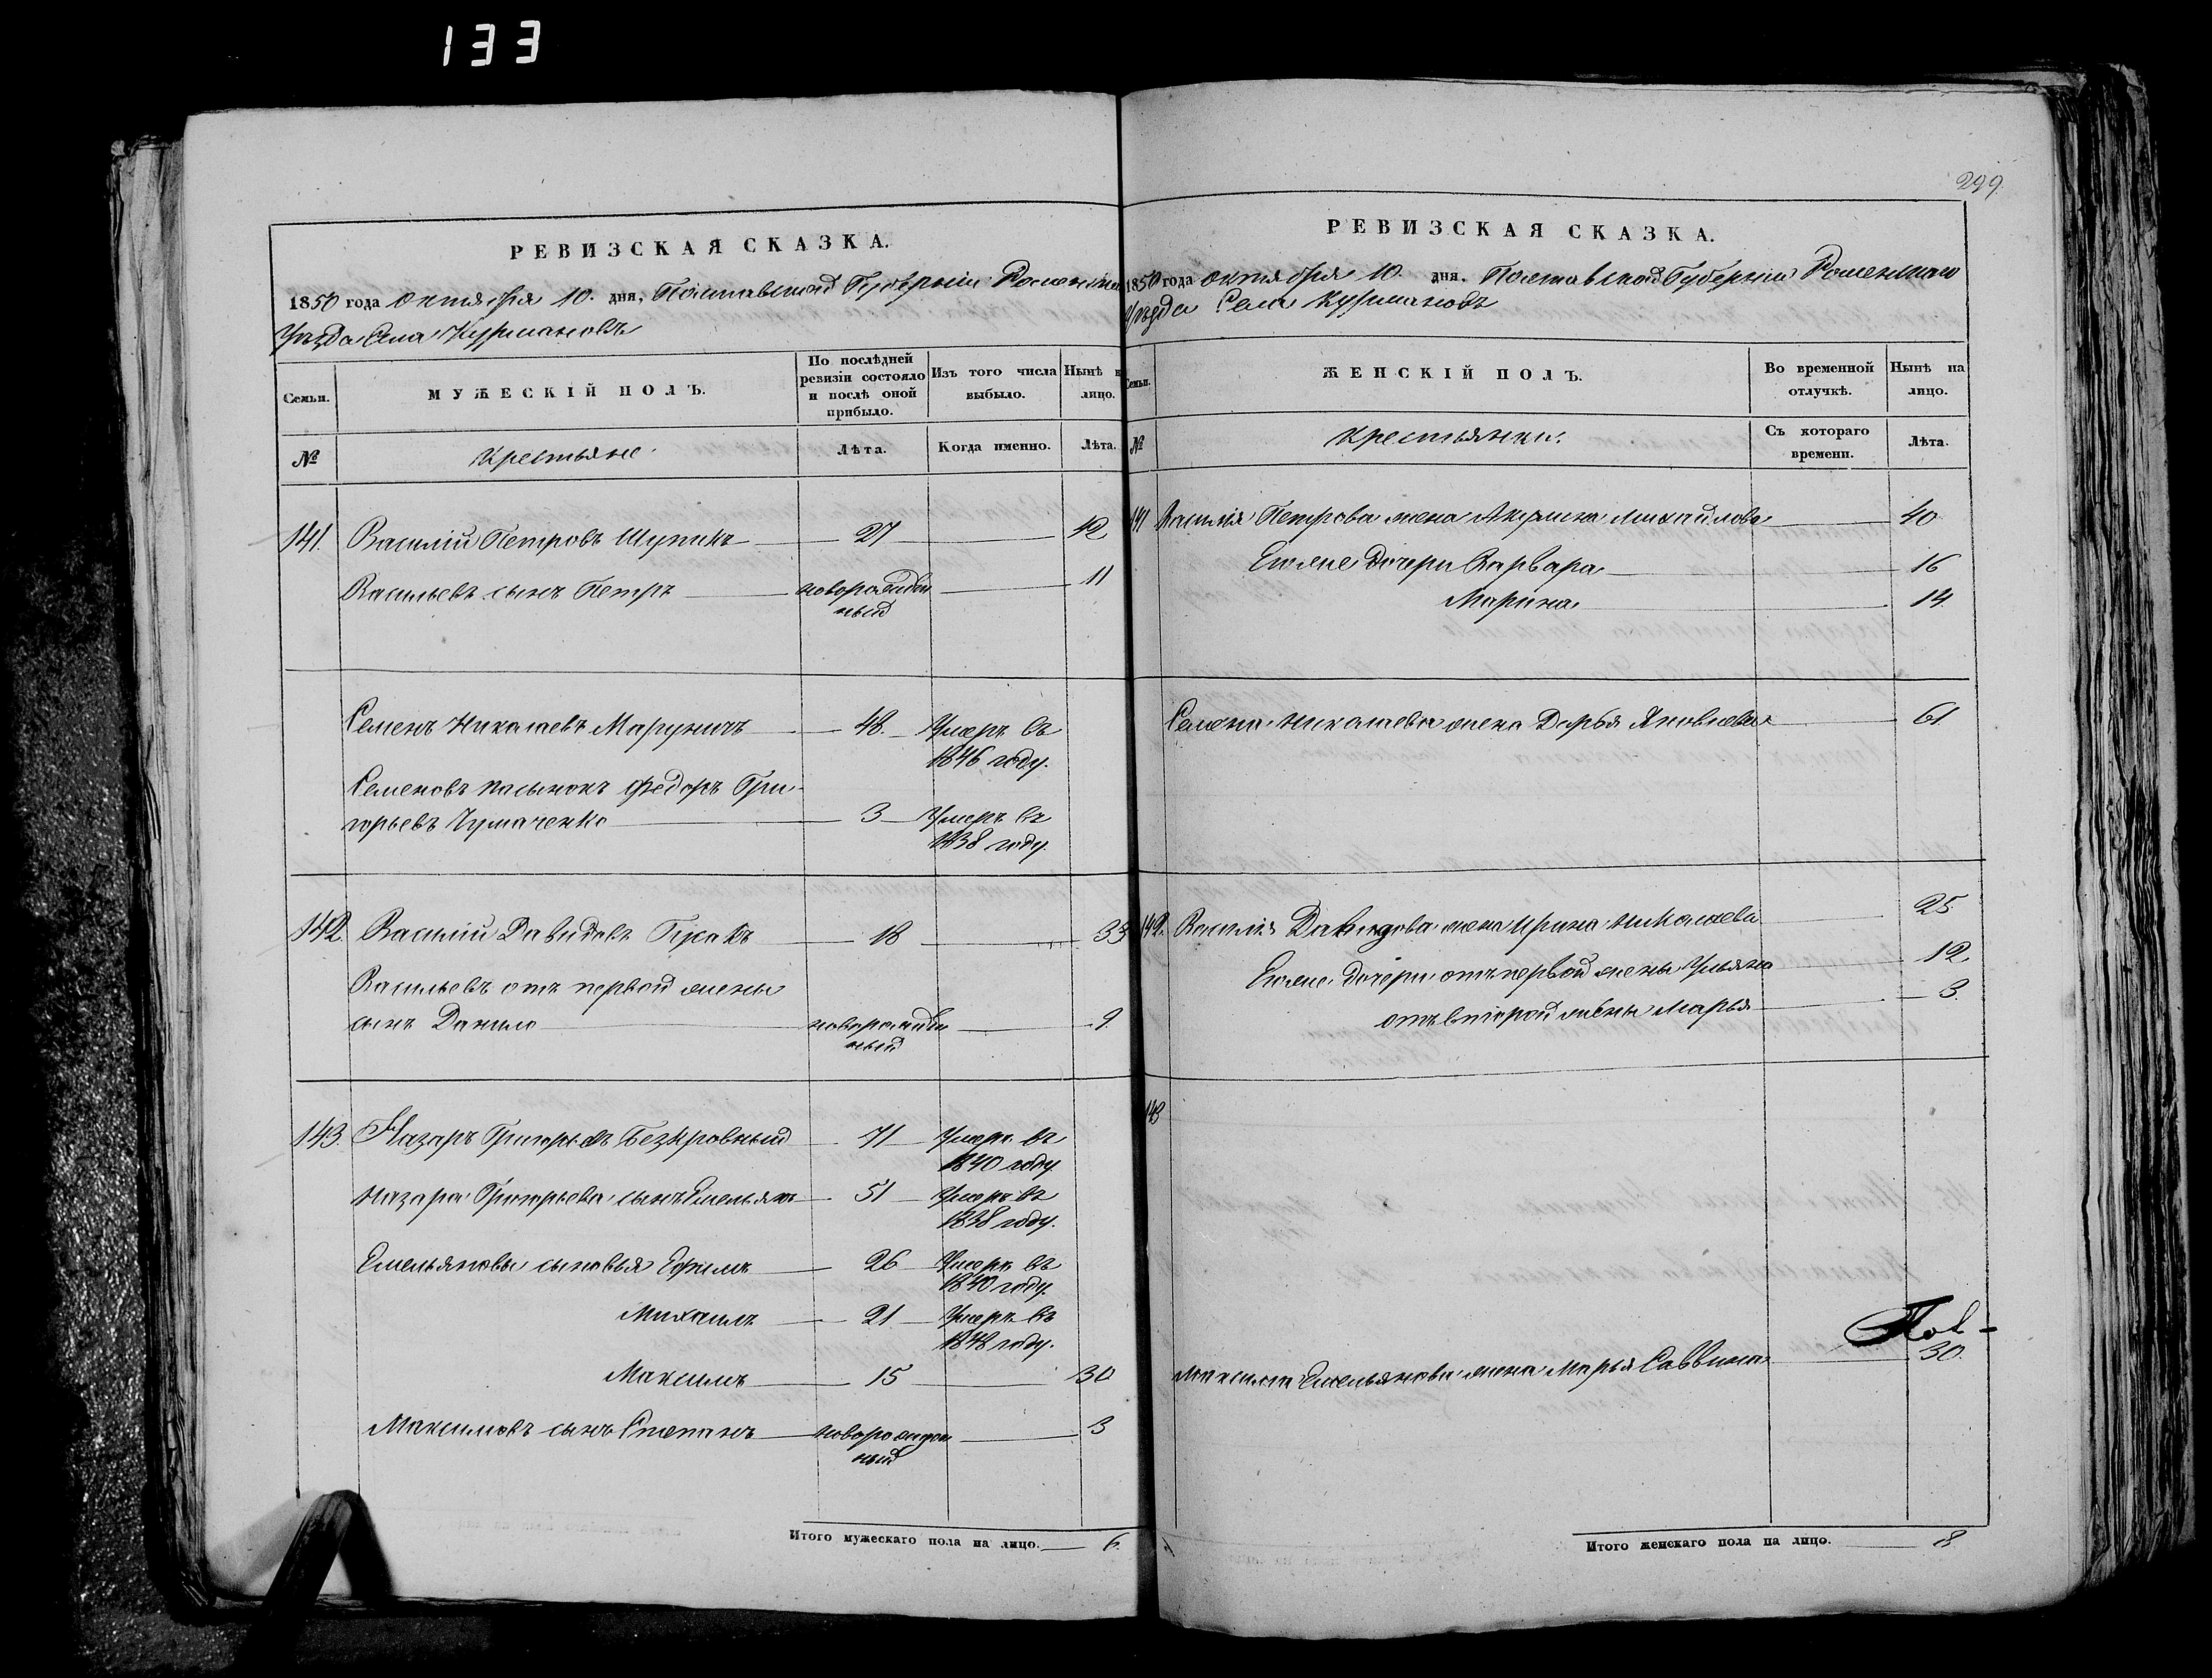 133
РЕВИЗСКАЯ СКАЗКА.
1850 года Октября 10. дня, Полтавской Губерніи Роменскаго
Уѣзда Села Курмановъ
Семьи.
МУЖЕСКІЙ ПОЛЪ.
По послѣдней ревизіи состояло и послѣ оной прибыло.
Изъ того числа выбыло.
Нынѣ на лицо.
№
Крестьяне.
Лѣта.
Когда именно.
Лѣта.
141. Василій Петровъ Шупикъ 27 42
Васильевъ сынъ Петръ новорожден 11
ный
Семенъ Николаевъ Маруничъ 48. Умеръ въ
1846 году.
Семеновъ пасынокъ Федоръ Гри-
горьевъ Чумаченко 3 Умеръ въ
1838 году.
142. Василій Давидовъ 18 33
Васильевъ отъ первой жены
сынъ Данило новорожден 9.
ный
143. Назаръ Григорьевъ Безкровный 71 Умеръ въ
1840 году
Назара Григорьева сынъ Емельянъ 51 Умеръ въ
1838 году.
Емельяновы сыновья Ефимъ 26 Умеръ въ
1840 году.
Михаилъ 21 Умеръ въ
1848 году.
Максимъ 15 30
Максимовъ сынъ Степанъ новорожден 3
ный
Итого мужескаго пола на лицо. 6.
299.
РЕВИЗСКАЯ СКАЗКА.
1850 года Октября 10. дня. Полтавской Губерніи Роменскаго
Уѣзда Села Курмановъ
Семьи.
ЖЕНСКІЙ ПОЛЪ.
Во временной отлучкѣ.
Нынѣ на лицо.
№
Крестьянки.
Съ котораго времени.
Лѣта.
141 Василія Петрова жена Акулина Михайлова 40
Ихже дочери Варвара 16
Марина 14.
Семена Николаева жена Дарья Яковлева 61
142. Василія Давидова жена Ирина Николаева 25
Ихже дочери отъ первой жены Ульяна 12.
отъ второй жены Марья 3.
143
Максима Емельянова жена Марья Саввина 30.
Итого женскаго пола на лицо. 8